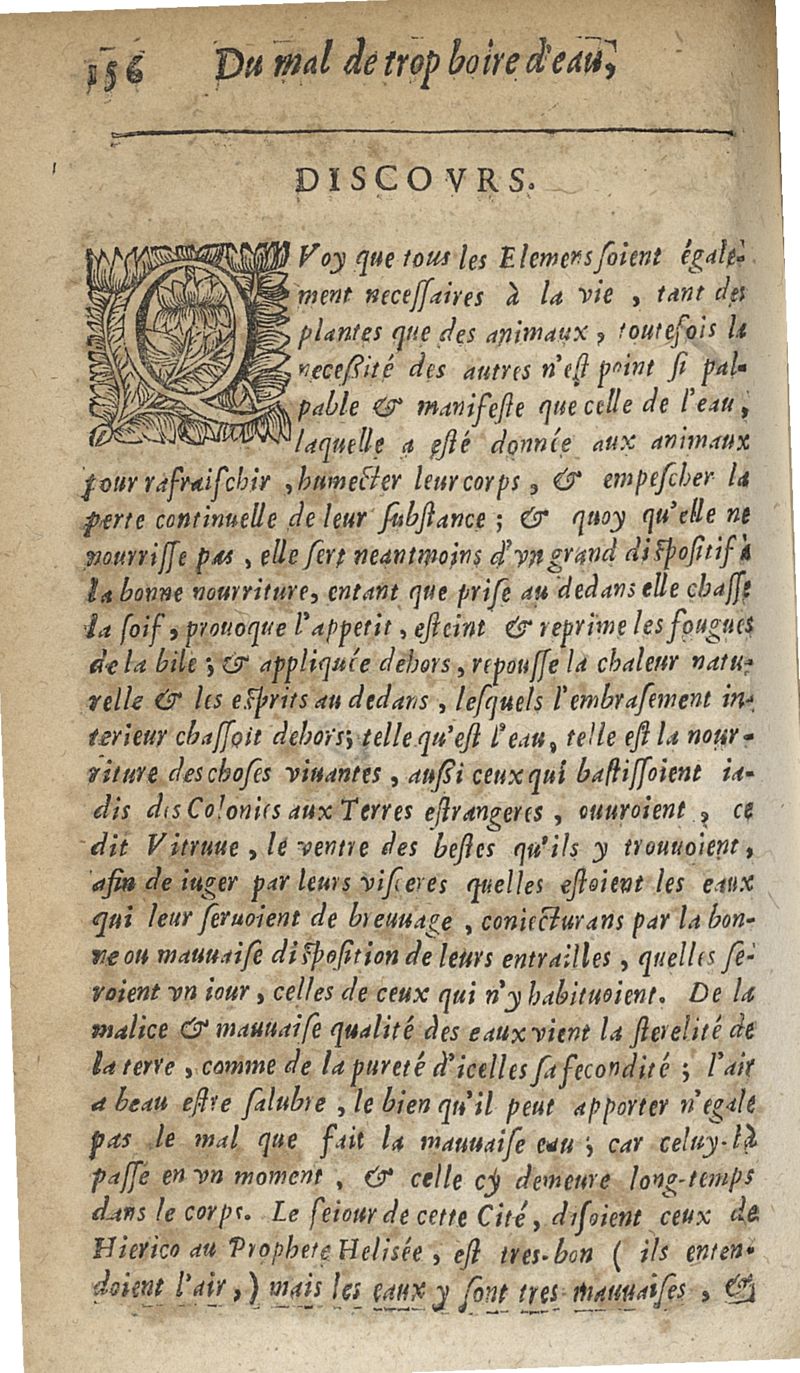 156 Du mal de trop boire d'eau,
DISCOVRS.
QVoy que tous les Elemens soient égale-
ment necessaires à la vie , tant des
plantes que des animaux , toutefois la
necessité des autres n'est point si pal-
pable & manifeste que celle de l'eau ,
laquelle a esté donnée aux animaux
pour rafraischir , humecter leur corps , & empescher la
perte continuelle de leur substance ; & quoy qu'elle ne
nourrisse pas , elle sert neantmoins d'vn grand dispositif à
la bonne nourriture, entant que prise au dedans elle chasse
la soif , prouoque l'appetit , esteint & reprime les fougues
de la bile ; & appliquée dehors , repousse la chaleur natu-
relle & les esprits au dedans , lesquels l'embrasement in-
terieur chassoit dehors; telle qu'est l'eau, telle est la nour-
riture des choses viuantes , aussi ceux qui bastissoient ia-
dis des Colonies aux Terres estrangeres , ouuroient , ce
dit Vitruue , le ventre des bestes qu'ils y trouuoient ,
afin de iuger par leurs visceres quelles estoient les eaux
qui leur seruoient de breuuage , coniecturans par la bon-
ne ou mauuaise disposition de leurs entrailles , quelles se-
roient vn iour , celles de ceux qui n'y habituoient. De la
malice & mauuaise qualité des eaux vient la sterelité de
la terre , comme de la pureté d'icelles sa fecondité ; l'air
a beau estre salubre , le bien qu'il peut apporter n'egale
pas le mal que fait la mauuaise eau ; car celuy-là
passe en vn moment , & celle cy demeure long-temps
dans le corps. Le seiour de cette Cité , disoient ceux de
Hierico au Prophete Helisée , est tres-bon ( ils enten-
doient l'air , ) mais les eaux y sont tres mauuaises , &